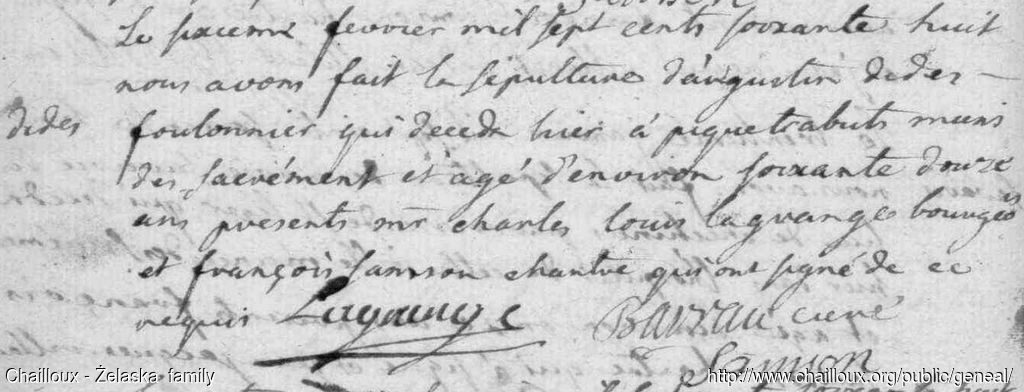 Le sixieme fevrier mil sept cents soixante huit
nous avons fait la sépulture d'augustin dedes
dedes
foulonnier qui deceda hier à piquetrabuts muni
des sacrément et agé d'environ soixante douze
ans presents mr charles louis lagrange bourgeois
et françois samson chantre qui ont signé de ce
requis Lagrange Barrau curé
Samson
Chailloux - Żelaska family
http://www.chailloux.org/public/geneal/